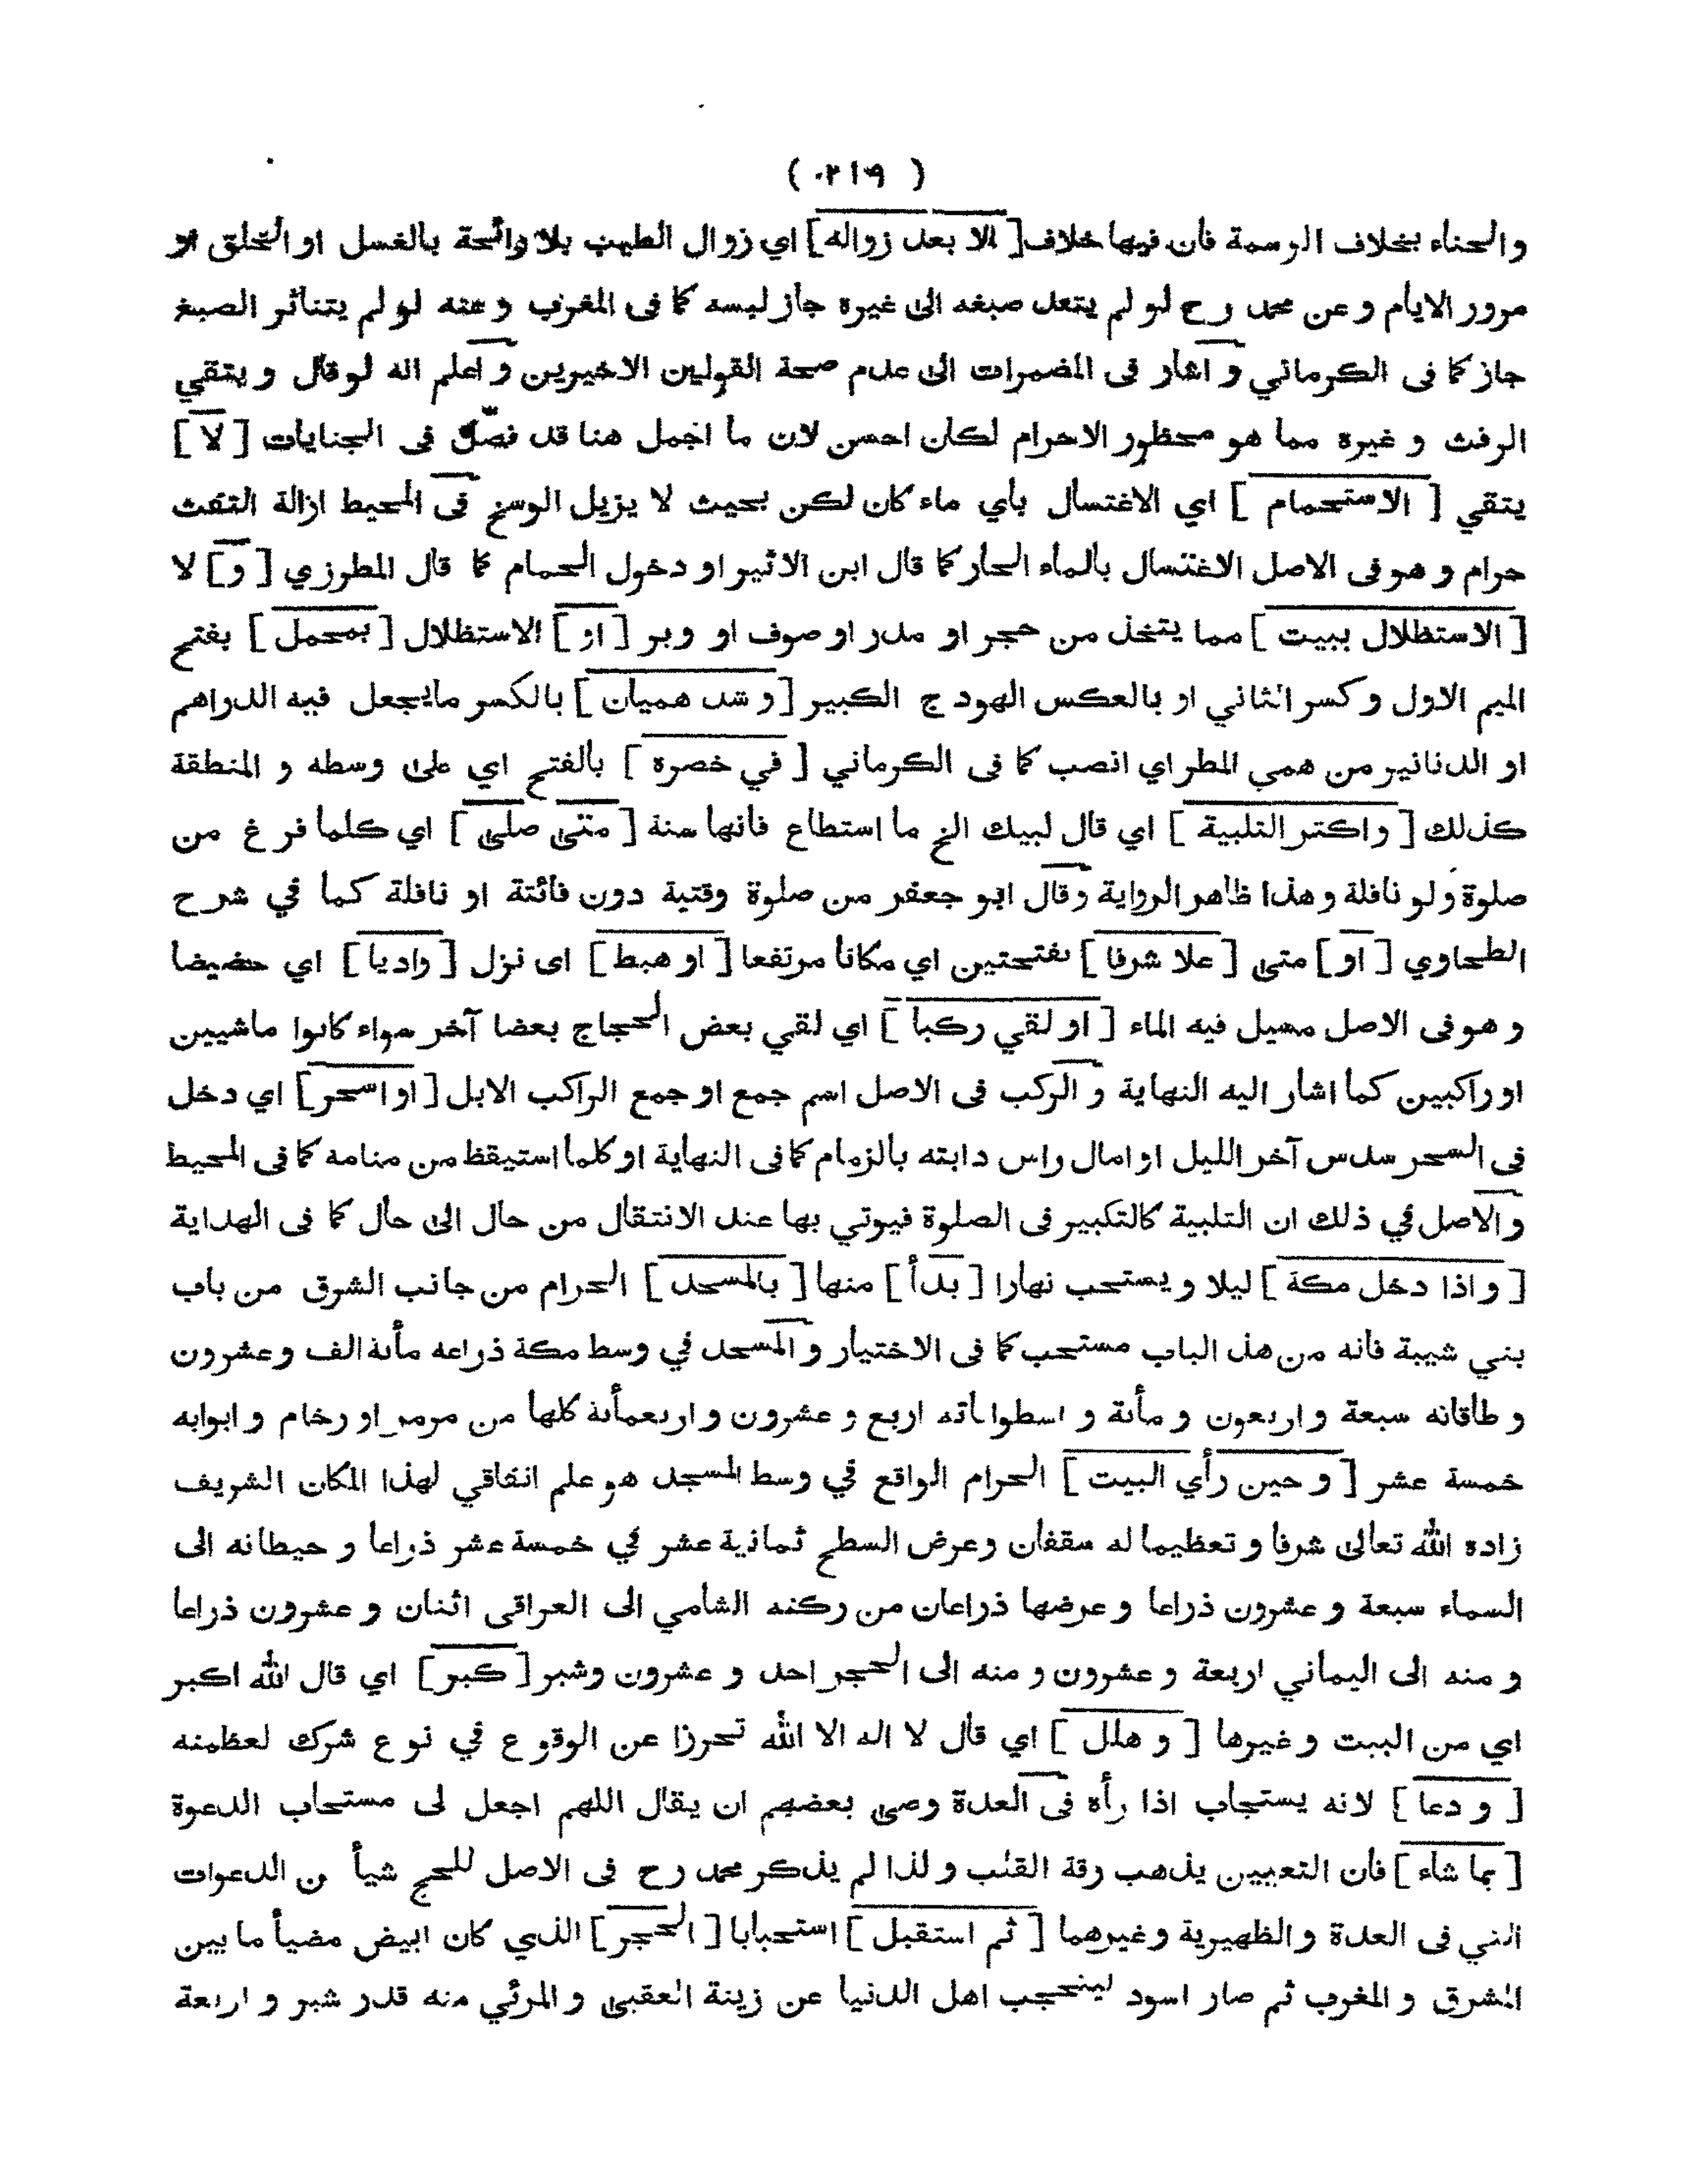 ( ٢١٩ )
والحناء بخلاف الوسمة فان فيها خلاف [ الا بعد زواله ] اي زوال الطيب بلا رائحة بالغسل او التخلق او
مرور الايام و عن محمد رح لو لم يتعد صبغه الى غيره جاز لبسه كما فى المغرب و عنه لو لم يتناثر الصبغ
جاز كما فى الكرماني و اشار فى المضمرات الى عدم صحة القولين الاخيرين و اعلم انه لو قال و يتقي
الرفث و غيره مما هو محظور الاحرام لكان احسن لان ما اجمل هنا قد فصّل فى الجنايات [ لا ]
يتقي [ الاستحمام ] اي الاغتسال بأي ماء كان لكن بحيث لا يزيل الوسخ فى المحيط ازالة التفث
حرام و هو فى الاصل الاغتسال بالماء الحار كما قال ابن الاثير او دخول الحمام كما قال المطرزي [ و ] لا
[ الاستظلال ببيت ] مما يتخذ من حجر او مدر او صوف او وبر [ او ] الاستظلال [ بمحمل ] بفتح
الميم الاول و كسر الثاني او بالعكس الهودج الكبير [ و شد هميان ] بالكسر ما يجعل فيه الدراهم
او الدنانير من همى المطر اي انصب كما فى الكرماني [ في خصره ] بالفتح اي على وسطه و المنطقة
كذلك [ واكثر التلبية ] اي قال لبيك الخ ما استطاع فانها سنة [ متى صلى ] اي كلما فرغ من
صلوة و لو نافلة و هذا ظاهر الرواية وقال ابو جعفر من صلوة وقتية دون فائتة او نافلة كما في شرح
الطحاوي [ او ] متى [ علا شرفا ] بفتحتين اي مكانا مرتفعا [ او هبط ] اى نزل [ واديا ] اي حضيضا
و هو فى الاصل مسيل فيه الماء [ او لقي ركبا ] اي لقي بعض الحجاج بعضا آخر سواء كانوا ماشيين
او راكبين كما اشار اليه النهاية و الركب فى الاصل اسم جمع او جمع الراكب الابل [ او اسحر ] اي دخل
فى السحر سدس آخر الليل او امال راس دابته بالزمام كما فى النهاية او كلما استيقظ من منامه كما فى المحيط
و الاصل في ذلك ان التلبية كالتكبير فى الصلوة فيوتي بها عند الانتقال من حال الى حال كما فى الهداية
[ و اذا دخل مكة ] ليلا و يستحب نهارا [ بدأ ] منها [ بالمسجد ] الحرام من جانب الشرق من باب
بني شيبة فانه من هذ الباب مستحب كما فى الاختيار و المسجد في وسط مكة ذراعه مأىة الف وعشرون
و طاقاته سبعة و اربعون و مأىة و اسطواناته اربع و عشرون و اربعمأىة كلها من مرمر او رخام و ابوابه
خمسة عشر [ و حين رأي البيت ] الحرام الواقع في وسط المسجد هو علم اتفاقي لهذا المكان الشريف
زاده الله تعالى شرفا و تعظيما له سقفان وعرض السطح ثمانية عشر في خمسة عشر ذراعا و حيطانه الى
السماء سبعة و عشرون ذراعا و عرضها ذراعان من ركنه الشامي الى العراقى اثنان و عشرون ذراعا
و منه الى اليماني اربعة و عشرون و منه الى الحجر احد و عشرون وشبر [ كبر ] اي قال الله اكبر
اي من البيت و غيرها [ و هلل ] اي قال لا اله الا الله تحرزا عن الوقوع في نوع شرك لعظمته
[ و دعا ] لانه يستجاب اذا رأه فى العدة وصى بعضهم ان يقال اللهم اجعل لى مستجاب الدعوة
[ بما شاء ] فان التعيين يذهب رقة القلب و لذا لم يذكر محمد رح فى الاصل للحج شيأ من الدعوات
التي فى العدة و الظهيرية و غيرهما [ ثم استقبل ] استحبابا [ الحجر ] الذي كان ابيض مضيأ ما بين
المشرق و المغرب ثم صار اسود لينحجب اهل الدنيا عن زينة العقبى و المرئي منه قدر شبر و اربعة